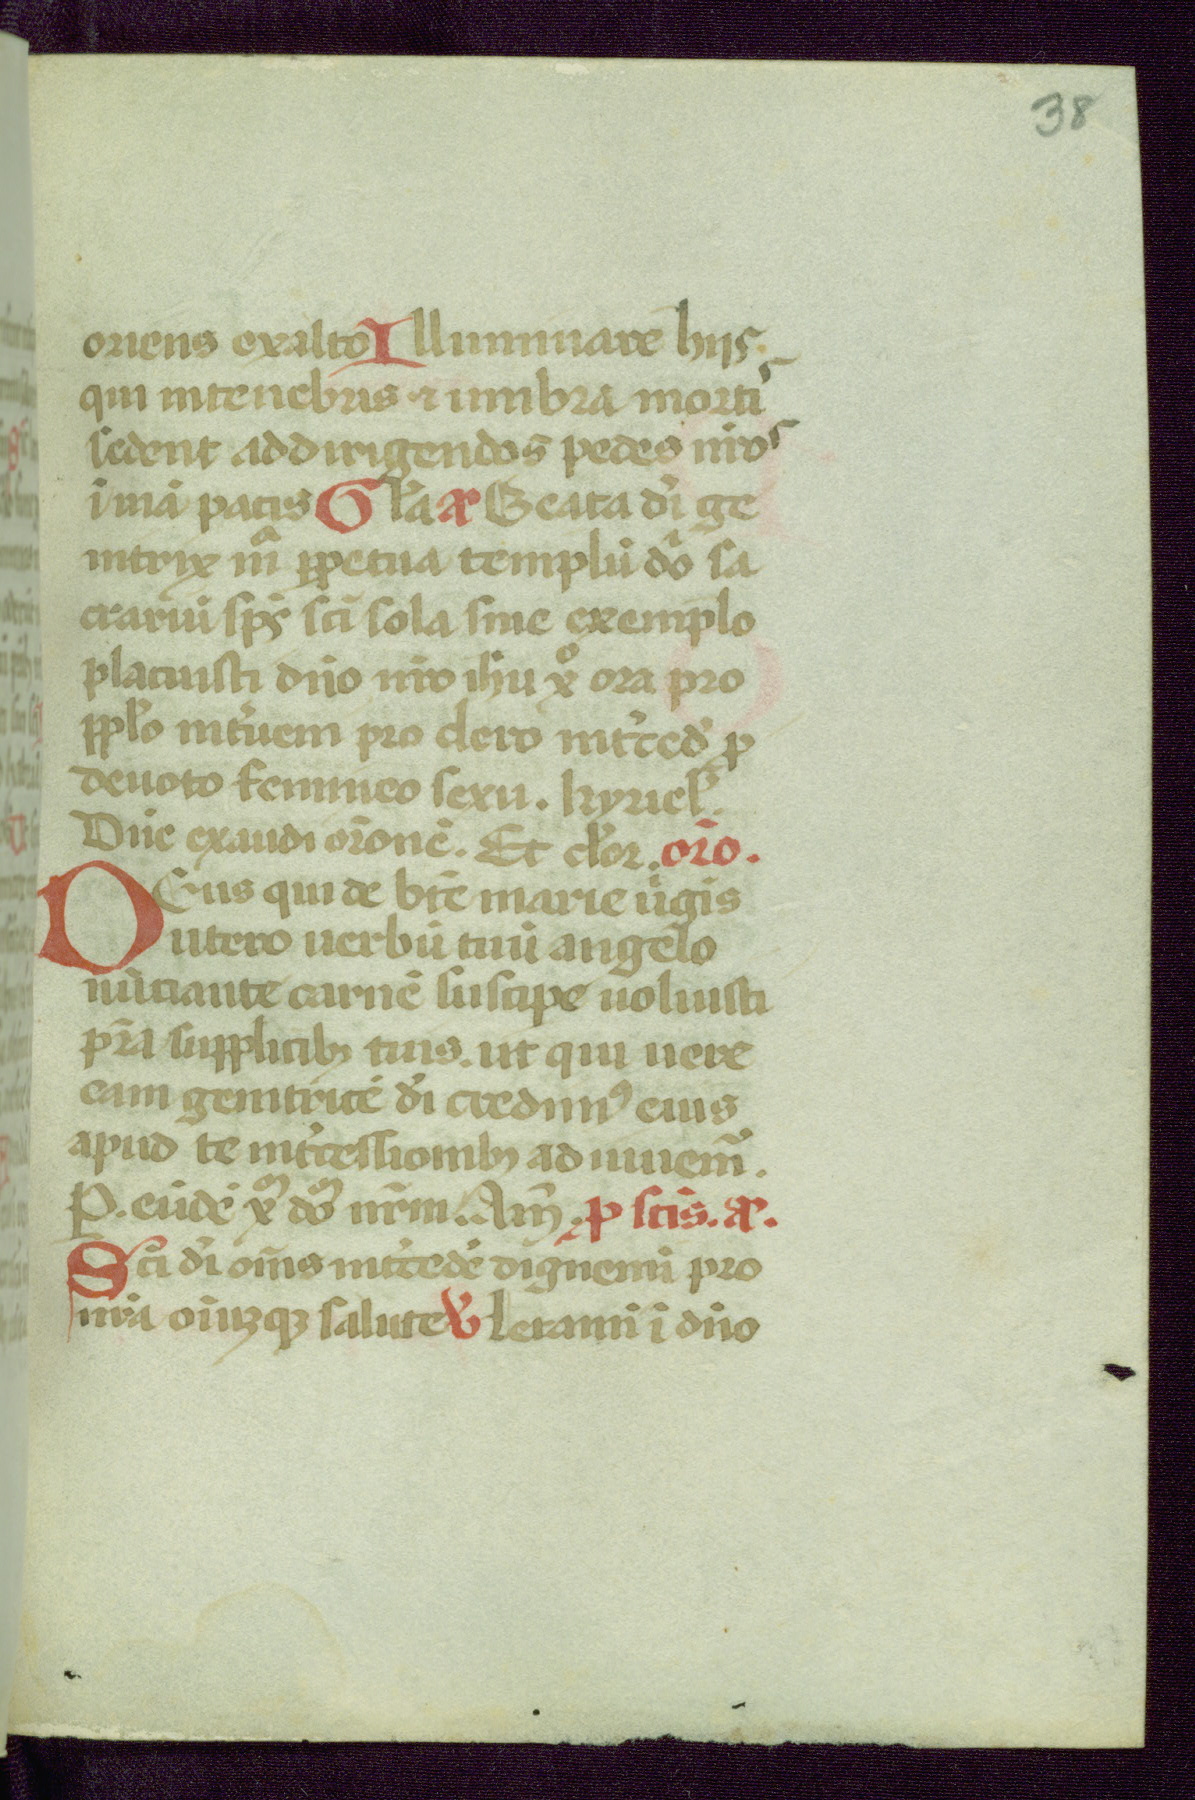 38
oriens exalto Illuminare hijs
qui in tenebris ⁊ umbra mortis
sedent ad dirigendos pedes nr̄os
i uiā pacis Gl̄a añ Beata dī ge
nitrix uͥ ꝑpetua templū dn̄i sa
crariū sp̄s sc̄i sola sine exemplo
placuisti dn̄o nr̄o ihū xͦ ora pro
pp̄lo int̄ueni pro clero int̄ced̄ ꝓ
deuoto femineo sexu. kyriel̄.
Dn̄e exaudi or̄onē. Et cl̄or. or̄o.
DEus qui de bt̄e marie uͥgīs
utero uerbū tuū angelo
nūciante carnē suscipe uoluisti
pr̄a supplicibꝫ tuis. ut qui uere
eam genitricē dī credimꝰ eius
apud te int̄cessionibꝫ adiuuem̄.
P. eūdē xm̄ dn̄m nr̄m. Am̄. ꝓ sc̄is. añ.
Sc̄i dī om̄s int̄ced̄e dignemī pro
nr̄a oīuꝫqꝫ salute ℣ letamī i dn̄o